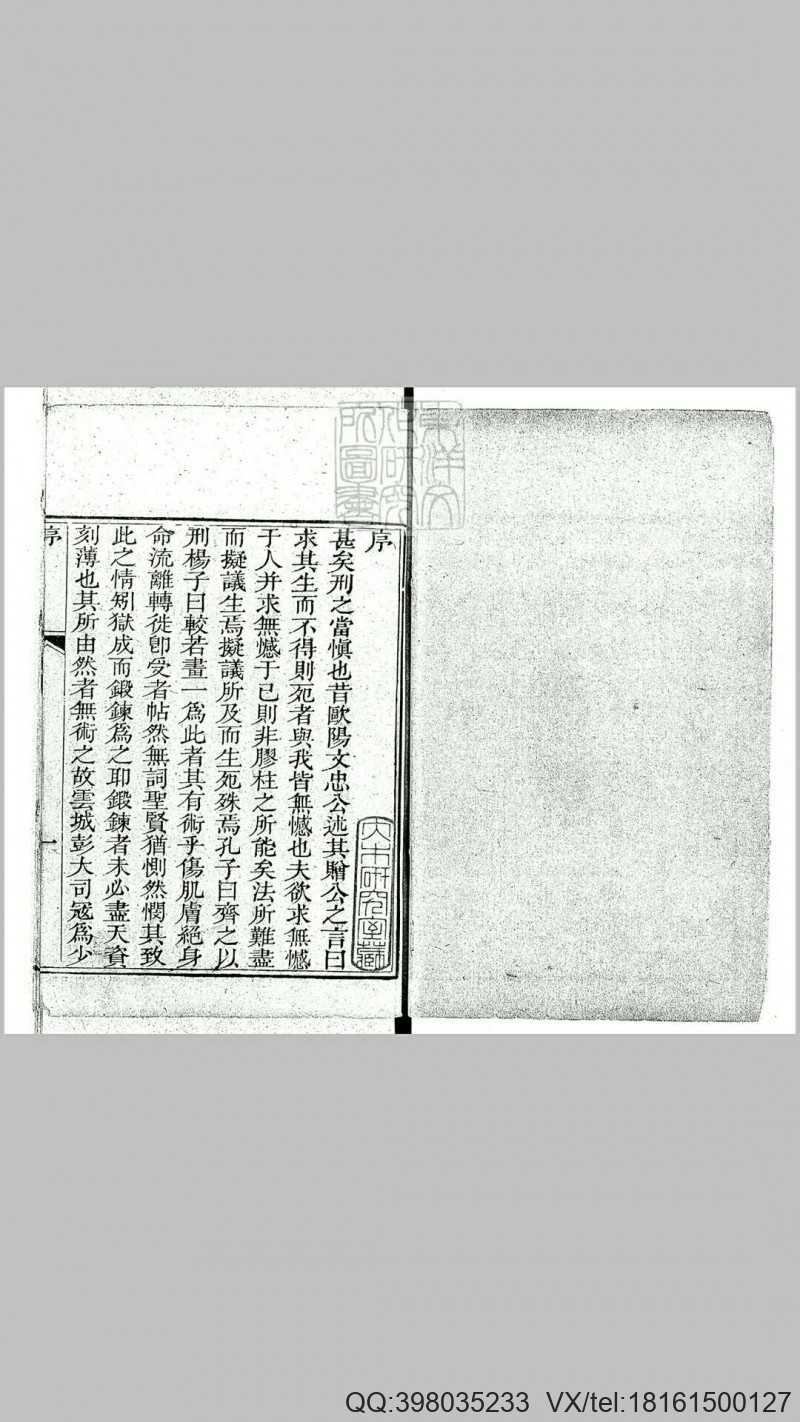 序
甚矣刑之當愼也昔歐陽文忠公述其贈公之言曰
求其生而不得則死者與我皆無憾也夫欲求無憾
于人并求無憾于已則非膠柱之所能矣法所難盡
而擬議生焉擬議所及而生死殊焉孔子曰齊之以
刑楊子曰較若畫一爲此者其有術乎傷肌膚絕身
命流離轉徙卽受者帖然無詞聖賢猶惻然憫其致
此之情矧獄成而鍛鍊爲之耶鍛鍊者未必盡天資
刻薄也其所由然者無術之故雲城彭大司寇爲少
序
一
東洋文化研究所圖書
大木研究室藏
QQ:398035233 VX/tel:18161500127